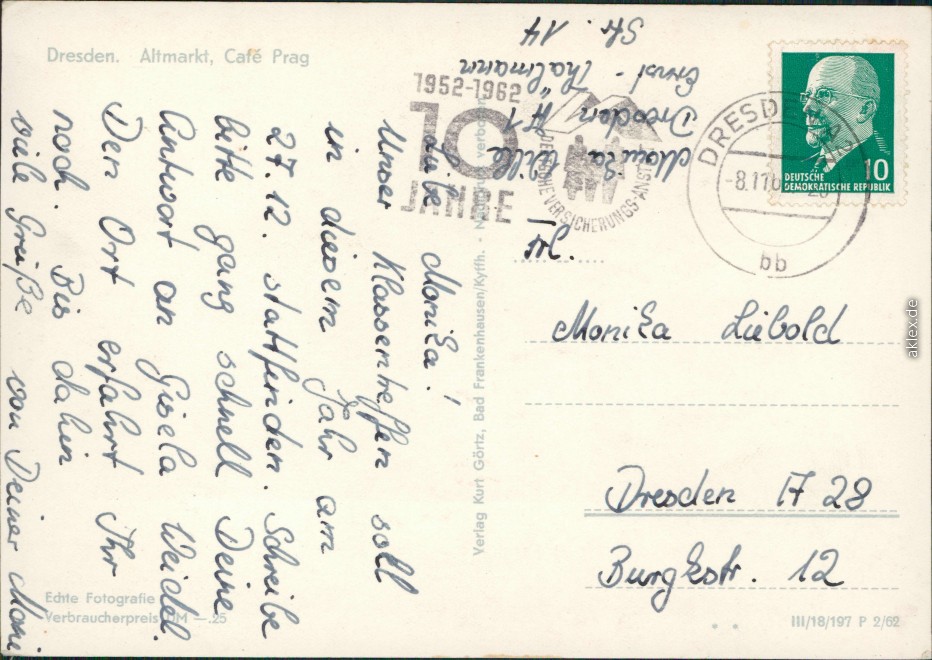 Dresden. Altmarkt, Café Prag
1952-1962
10
JAHRE
DEUTSCHE VERSICHERUNGS-ANSTALT
DRESDEN
-8.11.6
bb
10
DEUTSCHE
DEMOKRATISCHE REPUBLIK
Monika
Dresden A 1
Ernst-Thälmann
Str. 14
Frl.
Monika Liebold
Dresden A 28
Burgkstr. 12
Liebe Monika!
Unser Klassentreffen soll
in diesem Jahr am
27.12. stattfinden. Schreibe
bitte ganz schnell Deine
Antwort an Gisela Weidel.
Den Ort erfährt Ihr
noch. Bis dahin
viele Grüße von Deiner Moni.
Verlag Kurt Görtz, Bad Frankenhausen/Kyffh. - Nachdruck verboten
Echte Fotografie
Verbraucherpreis DM -.25
III/18/197 P 2/62
aklex.de